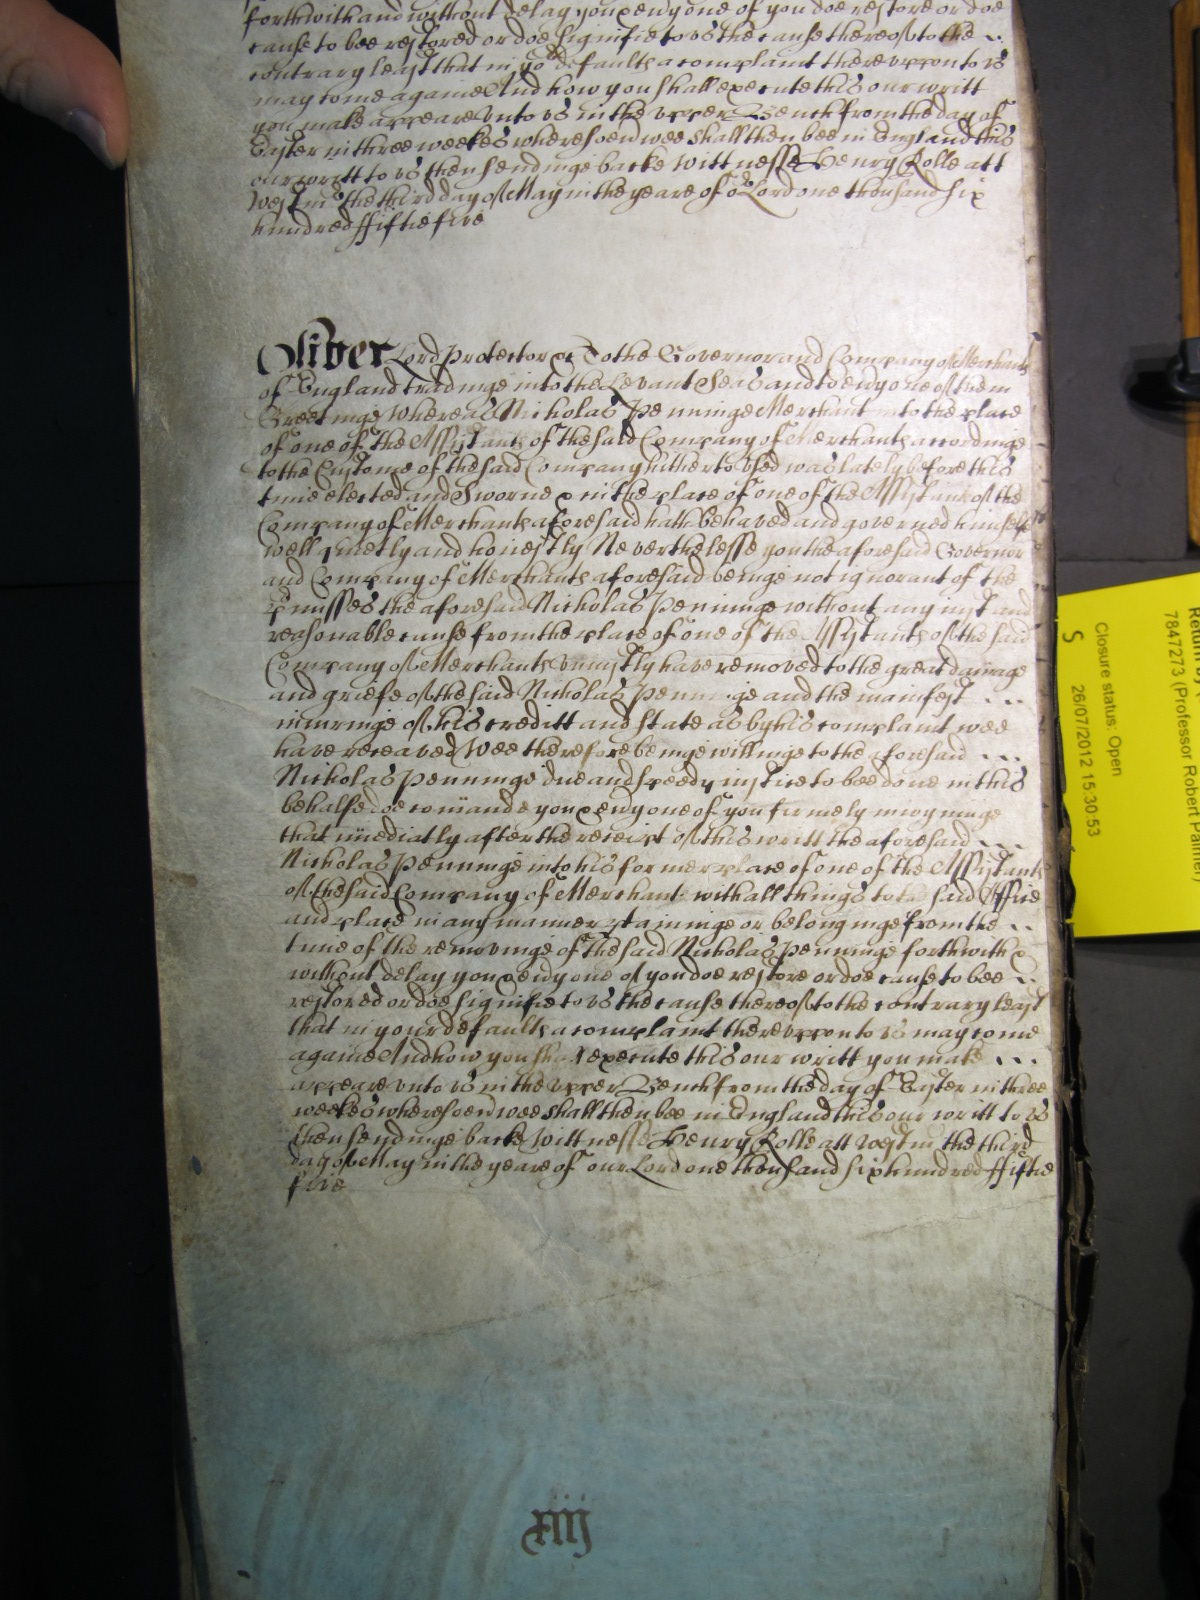 forthwith and without delay you & eny one of you doe restore or doe
cause to bee restored or doe signifie to us the cause thereof to the ..
contrary least that in yor defaults a complaint thereuppon to us
may come againe And how you shall execute this our writt
you make appeare unto us in the upper Bench from the day of
Easter in three weekes wheresoevr wee shall then bee in England this
our writt to us then sendinge backe Wittnesse Henry Rolle att
Westmr the third day of May in the yeare of or Lord one thousand six
hundred ffiftie five
Oliver Lord Protector &c To the Governor and Company of Merchants
of England tradinge into the Levant Seas and to evy one of them
Greetinge Whereas Nicholas Penninge Merchant into the place
of one of the Assistants of the said Company of Merchants accordinge
to the Custome of the said Company hitherto used was lately before this
time elected and Sworne & in the place of one of the Assistants of the
Company of Merchants aforesaid hath behaved and governed himselfe
well quietly and honestly Neverthelesse you the aforesaid Governor
and Company of Merchants aforesaid beinge not ignorant of the
pmisses the aforesaid Nicholas Penninge without any iust and
reasonable cause from the place of one of the Assistants of the said
Company of Merchants uniustly have removed to the great damage
and griefe of the said Nicholas Penninge and the manifest ...
iniuringe of his creditt and state as by his complaint wee
have receaved Wee therefore beinge willinge to the aforesaid ...
Nicholas Penninge due and speedy iustice to bee done in this
behalfe doe comande you & evy one of you firmely inioyninge
that imediatly after the receipt of this writt the aforesaid ...
Nicholas Penninge into his former place of one of the Assistants
of the said Company of Merchants with all things to the said Office
and place in any manner ptaininge or belonginge from the ..
time of the removinge of the said Nicholas Penninge forthwith &
without delay you & evy one of you doe restore or doe cause to bee ..
restored or doe signifie to us the cause thereof to the contrary least
that in your defaults a complaint thereuppon to us may come
againe And how you shall execute this our writt you make ...
appeare unto us in the upper Bench from the day of Easter in three
weekes wheresoevr wee shall then bee in England this our writt to us
then sendinge backe Wittnesse Henry Rolle att Westmr the third
day of May in the yeare of our Lord one thousand six hundred ffiftie
five
xiij
Return by
7847273 (Professor Robert Palmer)
Closure status: Open
26/07/2012 15:30:53
S